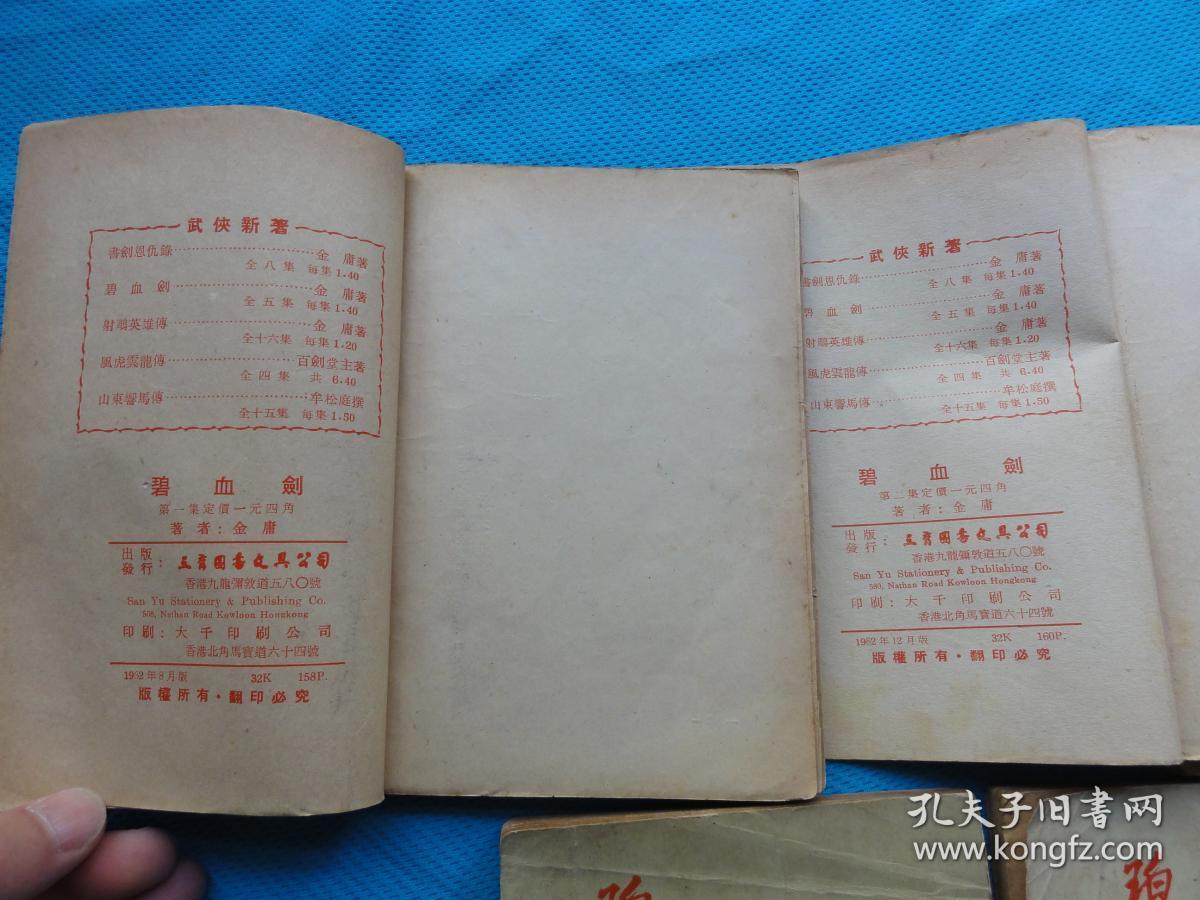 武俠新著
書劍恩仇錄 金庸著
全八集 每集1.40
碧血劍 金庸著
全五集 每集1.40
射鵰英雄傳 金庸著
全十六集 每集1.20
風虎雲龍傳 百劍堂主著
全四集 共6.40
山東響馬傳 牟松庭撰
全十五集 每集1.50
碧血劍
第一集定價一元四角
著者:金庸
出版
發行:三育圖書文具公司
香港九龍彌敦道五八〇號
San Yu Stationery & Publishing Co.
Nathan Road Kowloon Hongkong
印刷:大千印刷公司
香港北角馬寶道六十四號
1962年8月版 32K 158P.
版權所有·翻印必究
武俠新著
書劍恩仇錄 金庸著
全八集 每集1.40
碧血劍 金庸著
全五集 每集1.40
射鵰英雄傳 金庸著
全十六集 每集1.20
風虎雲龍傳 百劍堂主著
全四集 共6.40
山東響馬傳 牟松庭撰
全十五集 每集1.50
碧血劍
第二集定價一元四角
著者:金庸
出版
發行:三育圖書文具公司
香港九龍彌敦道五八〇號
San Yu Stationery & Publishing Co.
580, Nathan Road Kowloon Hongkong
印刷:大千印刷公司
香港北角馬寶道六十四號
1962年12月版 32K 160P.
版權所有·翻印必究
孔夫子旧书网
www.kongfz.com